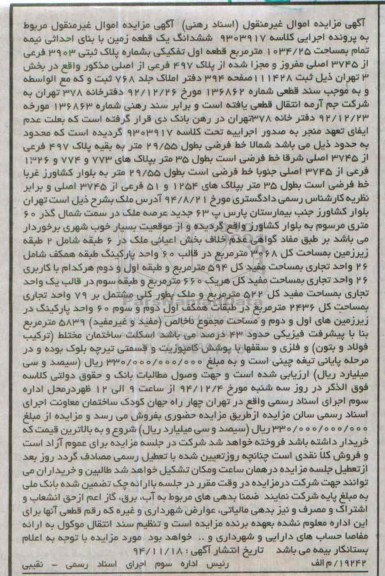 آگهی مزایده اموال غیرمنقول (اسناد رهنی) آگهی مزایده اموال غیرمنقول مربوط
به پرونده اجرایی کلاسه ۹۳۰۳۹۱۷ ششدانگ یک قطعه زمین با بنای احداثی نیمه
تمام بمساحت ۱۰۳۴/۲۵ مترمربع قطعه اول تفکیکی بشماره پلاک ثبتی ۳۹۰۳ فرعی
از ۳۷۴۵ اصلی مفروز و مجزا شده از پلاک ۴۹۷ فرعی از اصلی مذکور واقع در بخش
۳ تهران ذیل ثبت ۱۱۱۴۲۸ صفحه ۳۹۴ دفتر املاک جلد ۷۶۸ ثبت و که مع الواسطه
و به موجب سند قطعی شماره ۱۳۶۸۶۲ مورخ ۹۲/۱۲/۲۶ دفترخانه ۳۷۸ تهران به
شرکت جم آرمه انتقال قطعی یافته است و برابر سند رهنی شماره ۱۳۶۸۶۳ مورخه
۹۲/۱۲/۲۳ دفتر خانه ۳۷۸ تهران در رهن بانک دی قرار گرفته است که بعلت عدم
ایفای تعهد منجر به صدور اجراییه تحت کلاسه ۹۳۰۳۹۱۷ گردیده است که محدود
به حدود ذیل می باشد شمالا خط فرضی است بطول ۲۹/۵۵ متر به بقیه پلاک ۴۹۷ فرعی
از ۳۷۴۵ اصلی شرقا خط فرضی است بطول ۳۵ متر بپلاک های ۷۷۳ و ۷۷۴ و ۱۳۲۶
فرعی از ۳۷۴۵ اصلی جنوبا خط فرضی است بطول ۲۹/۵۵ متر به بلوار کشاورز غربا
خط فرضی است بطول ۳۵ متر بپلاک های ۱۲۵۴ و ۵۱ فرعی از ۳۷۴۵ اصلی و برابر
نظریه کارشناس رسمی دادگستری مورخ ۹۴/۸/۲۱ آدرس ملک بشرح ذیل است تهران
بلوار کشاورز جنب بیمارستان پارس پ ۶۳ جدید عرصه ملک در سمت شمال گذر ۶۰
متری مرسوم به بلوار کشاورز واقع گردیده و از موقعیت بسیار خوب شهری برخوردار
می باشد بر طبق مفاد گواهی عدم خلاف بخش اعیانی ملک در ۶ طبقه شامل ۲ طبقه
زیرزمین بمساحت کل ۳۰۶۸ مترمربع در قالب ۶۰ واحد پارکینگ طبقه همکف شامل
۲۶ واحد تجاری بمساحت مفید کل ۵۹۴ مترمربع و طبقه اول و دوم هرکدام با کاربری
۲۶ واحد تجاری بمساحت مفید کل هریک ۶۶۰ مترمربع و طبقه سوم در قالب یک واحد
تجاری بمساحت مفید کل ۵۲۲ مترمربع و ملک بطور کلی مشتمل بر ۷۹ واحد تجاری
بمساحت کل ۲۴۳۶ مترمربع در طبقات همکف اول دوم و سوم ۶۰ واحد پارکینگ در
زیرزمین های اول و دوم و مساحت مجموع ناخالص (مفید و غیرمفید) ۵۸۳۹ مترمربع
بنا با پیشرفت فیزیکی حدود ۴۳ درصد می باشد اسکلت ساختمان مختلط (ترکیب
فولاد و بتون) و فلزی و سقفها با پوشش کامپوزیت و قسمتی تیرچه بلوک بوده و در
مرحله پایانی تیغه چینی است و به مبلغ ۳۳۰/۰۰۰/۰۰۰/۰۰۰ ریال (سیصد و سی
میلیارد ریال) ارزیابی شده است و جهت وصول مطالبات بانک و حقوق دولتی کلاسه
فوق الذکر در روز سه شنبه مورخ ۹۴/۱۲/۴ از ساعت ۹ الی ۱۲ ظهر درمحل اداره
سوم اجرای اسناد رسمی واقع در تهران چهار راه جهان کودک ساختمان معاونت اجرای
اسناد رسمی سالن مزایده ازطریق مزایده حضوری بفروش می رسد و مزایده از مبلغ
۳۳۰/۰۰۰/۰۰۰/۰۰۰ ریال (سیصد و سی میلیارد ریال) شروع و به بالاترین قیمت که
خریدار داشته باشد فروخته خواهد شد شرکت در جلسه مزایده برای عموم آزاد است
و فروش کلا نقدی است چنانچه روزتعیین شده با تعطیل رسمی مصادف گردد روز بعد
ازتعطیل جلسه مزایده درهمان ساعت ومکان تشکیل خواهد شد طالبین و خریداران می
توانند جهت شرکت درمزایده در وقت مقرر در جلسه باارائه چک تضمین شده بانک ملی
به مبلغ پایه شرکت نمایند ضمنا بدهی های مربوط به آب، برق، گاز اعم ازحق انشعاب و
اشتراک و مصرف و نیز بدهی مالیاتی، عوارض شهرداری و غیره که رقم قطعی آنها برای
این اداره معلوم نشده بعهده برنده مزایده است و تنظیم سند انتقال موکول به ارائه
مفاصا حساب های دارایی و شهرداری و .. خواهد بود مورد مزایده با توجه به اعلام
بستانکار بیمه می باشد تاریخ انتشار آگهی: ۹۴/۱۱/۱۸
۱۹۲۴۲/م الف رئیس اداره سوم اجرای اسناد رسمی - نقیبی